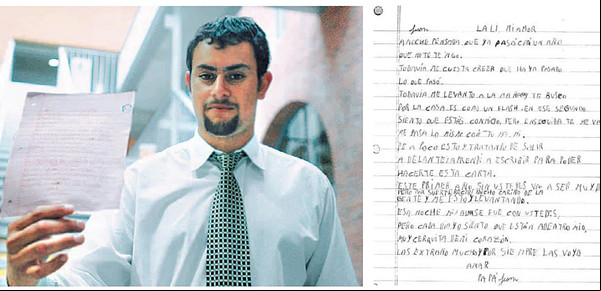 LALI MI AMOR
ANOCHE PENSABA QUE YA PASÓ CASI UN AÑO
QUE NO TE TENGO.
TODAVÍA ME CUESTA CREER QUE HAYA PASADO
LO QUE PASÓ.
TODAVÍA ME LEVANTO A LA MAÑANA Y TE BUSCO
POR LA CASA. ES COMO UN FLASH. EN ESE SEGUNDO
SIENTO QUE ESTÁS CONMIGO, PERO ENSEGUIDA TE ME VA
ME PASA LO MISMO CON TU MAMI.
DE A POCO ESTOY TRATANDO DE SALIR
ADELANTE A ESCRIBIR PARA PODER
HACERTE ESTA CARTA.
ESTE PRIMER AÑO, SIN USTEDES VA A SER MUY D
PERO POR SUERTE RECIBO MUCHO CARIÑO DE LA
GENTE Y ME ESTOY LEVANTANDO.
ESA NOCHE MI ALMA SE FUE CON USTEDES,
PERO CADA DIA YO SIENTO QUE ESTÁN ADENTRO MIO,
MUY CERQUITA DE MI CORAZÓN.
LAS EXTRAÑO MUCHO Y POR SIEMPRE LAS VOY A
AMAR
PAPÁ